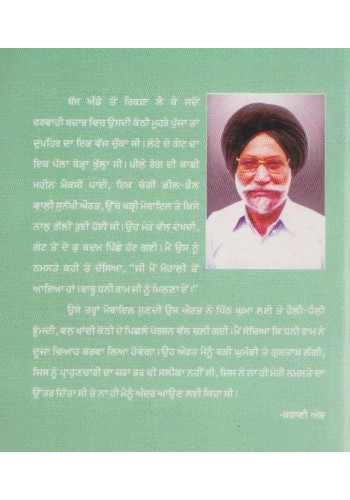 ਬੱਸ ਅੱਡੇ ਤੋਂ ਰਿਕਸ਼ਾ ਲੈ ਕੇ ਜਦੋਂ
ਫਰਵਾਹੀ ਬਜ਼ਾਰ ਵਿਚ ਉਸਦੀ ਕੋਠੀ ਮੂਹਰੇ ਪੁੱਜਾ ਤਾਂ
ਦੁਪਹਿਰ ਦਾ ਇਕ ਵੱਜ ਚੁੱਕਾ ਸੀ। ਲੋਹੇ ਦੇ ਗੇਟ ਦਾ
ਇਕ ਪੱਲਾ ਥੋੜ੍ਹਾ ਖੁੱਲ੍ਹਾ ਸੀ। ਪੀਲੇ ਰੰਗ ਦੀ ਕਾਫੀ
ਮਹੀਨ ਮੈਕਸੀ ਪਾਈ, ਇਕ ਚੰਗੀ ਡੀਲ-ਡੌਲ
ਵਾਲੀ ਸੁਨੱਖੀ ਔਰਤ, ਉੱਥੇ ਖੜ੍ਹੀ ਮੋਬਾਇਲ ਤੇ ਕਿਸੇ
ਨਾਲ ਗੱਲੀਂ ਰੁਝੀ ਹੋਈ ਸੀ। ਉਹ ਮੇਰੇ ਵੱਲ ਦੇਖਦੀ,
ਗੇਟ ਤੋਂ ਦੋ ਕੁ ਕਦਮ ਪਿੱਛੇ ਹਟ ਗਈ। ਮੈਂ ਉਸ ਨੂੰ
ਨਮਸਤੇ ਕਹੀ ਤੇ ਦੱਸਿਆ, "ਜੀ ਮੈਂ ਮੋਹਾਲੀ ਤੋਂ
ਆਇਆ ਹਾਂ। ਬਾਬੂ ਧਨੀ ਰਾਮ ਜੀ ਨੂੰ ਮਿਲਣਾ ਏਂ।"
ਉਸੇ ਤਰ੍ਹਾਂ ਮੋਬਾਇਲ ਸੁਣਦੀ ਉਸ ਔਰਤ ਨੇ ਪਿੱਠ ਘੁਮਾ ਲਈ ਤੇ ਹੌਲੀ-ਹੌਲੀ
ਝੂੰਮਦੀ, ਵਲ ਖਾਂਦੀ ਕੋਠੀ ਦੇ ਪਿਛਲੇ ਪੋਰਸ਼ਨ ਵੱਲ ਚਲੀ ਗਈ। ਮੈਂ ਸੋਚਿਆ ਕਿ ਧਨੀ ਰਾਮ ਨੇ
ਦੂਜਾ ਵਿਆਹ ਕਰਵਾ ਲਿਆ ਹੋਵੇਗਾ। ਉਹ ਔਰਤ ਮੈਨੂੰ ਬੜੀ ਘੁਮੰਡੀ ਤੇ ਗੁਸਤਾਖ਼ ਲੱਗੀ,
ਜਿਸ ਨੂੰ ਪ੍ਰਾਹੁਣਚਾਰੀ ਦਾ ਜ਼ਰਾ ਭਰ ਵੀ ਸਲੀਕਾ ਨਹੀਂ ਸੀ, ਜਿਸ ਨੇ ਨਾ ਹੀ ਮੇਰੀ ਨਮਸਤੇ ਦਾ
ਉੱਤਰ ਦਿੱਤਾ ਸੀ ਤੇ ਨਾ ਹੀ ਮੈਨੂੰ ਅੰਦਰ ਆਉਣ ਲਈ ਕਿਹਾ ਸੀ।
-ਕਹਾਣੀ ਅੰਸ਼